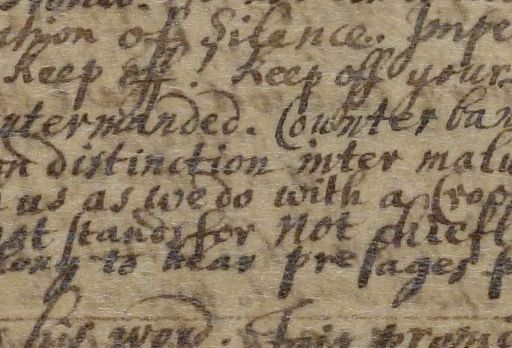 ation off Silence. Impe
Keep off. Keep off yours
ntermanded. Counterban
on distinction inter malu
us as we do with a drop
st stands for Not chiefl
long to hear presages f
his word. Fair promi